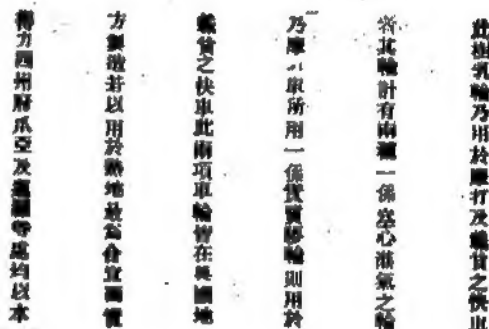 此樹乳輪乃用於摩打及載貨之快車
者其輪計有兩種一係空心滊氣之輪
乃摩 車所用一係實 輪則用於
載貨之快車此兩項車輪皆在英國地
方製造并以用於熱地最為合宜
得力 州府爪亞及 等處均以本